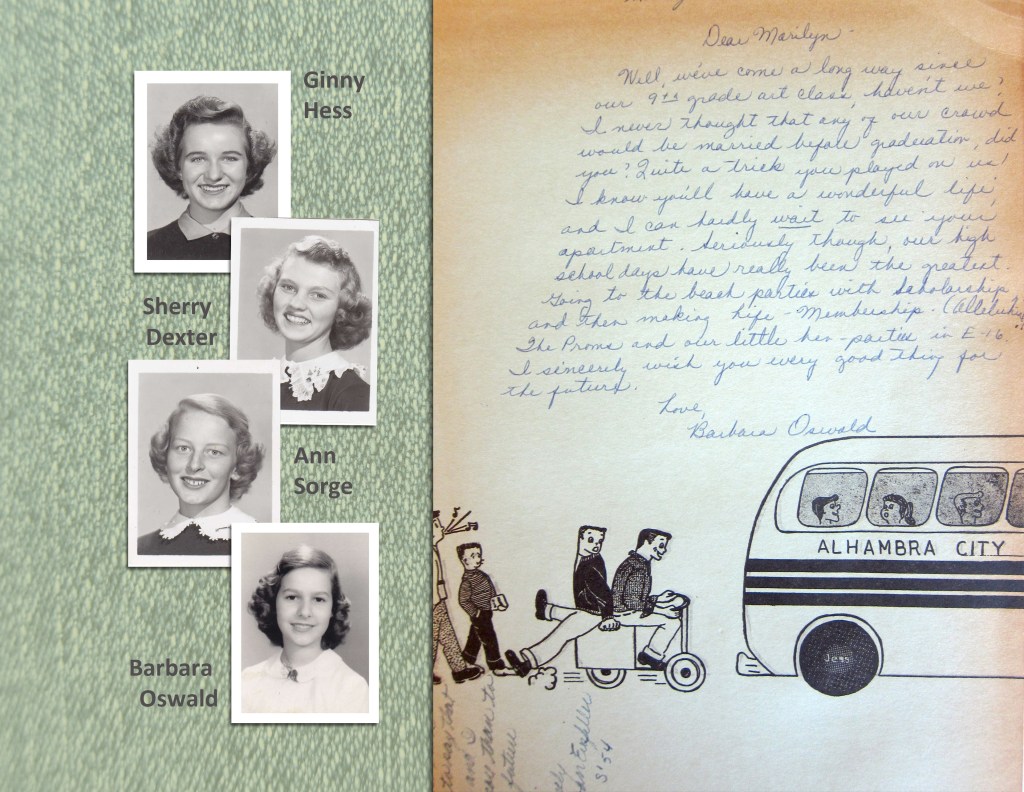 Ginny
Hess
Sherry
Dexter
Ann
Sorge
Barbara
Oswald
Dear Marilyn -
Well, we've come a long way since
our 9th grade art class, haven't we?
I never thought that any of our crowd
would be married before graduation, did
you? Quite a trick you played on us!
I know you'll have a wonderful life,
and I can hardly wait to see your
apartment. Seriously though, our high
school days have really been the greatest.
Going to the beach parties with Scholarship
and then making Life-Membership. (Alleluhia
The Proms and our little hen-parties in E-16.
I sincerely wish you every good thing for
the future.
Love,
Barbara Oswald
ALHAMBRA CITY
Jess
to say that
and I
than to
future
S'54